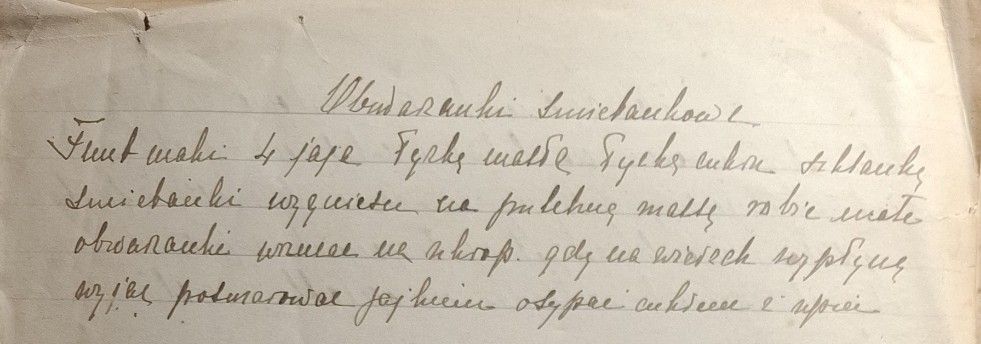 Obwaranki smietankowe
Funt maki 4 jaja łyzkę masła łyzkę cukru szklankę
smietanki wygniesc na pulchną massę robic małe
obwaranki wrzucac na ukrop. gdy na wierzch wypłyną
wyjąc posmarowac jajkiem osypac cukrem i upiec